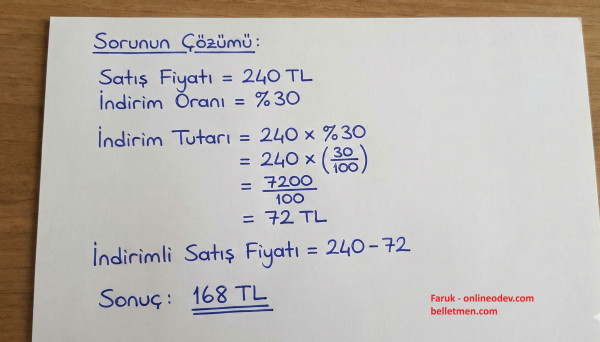 Sorunun Çözümü:
Satış Fiyatı = 240 TL
İndirim Oranı = %30
İndirim Tutarı = 240 × %30
= 240 × (30/100)
= 7200/100
= 72 TL
İndirimli Satış Fiyatı = 240-72
Sonuç: 168 TL
Faruk - onlineodev.com
belletmen.com